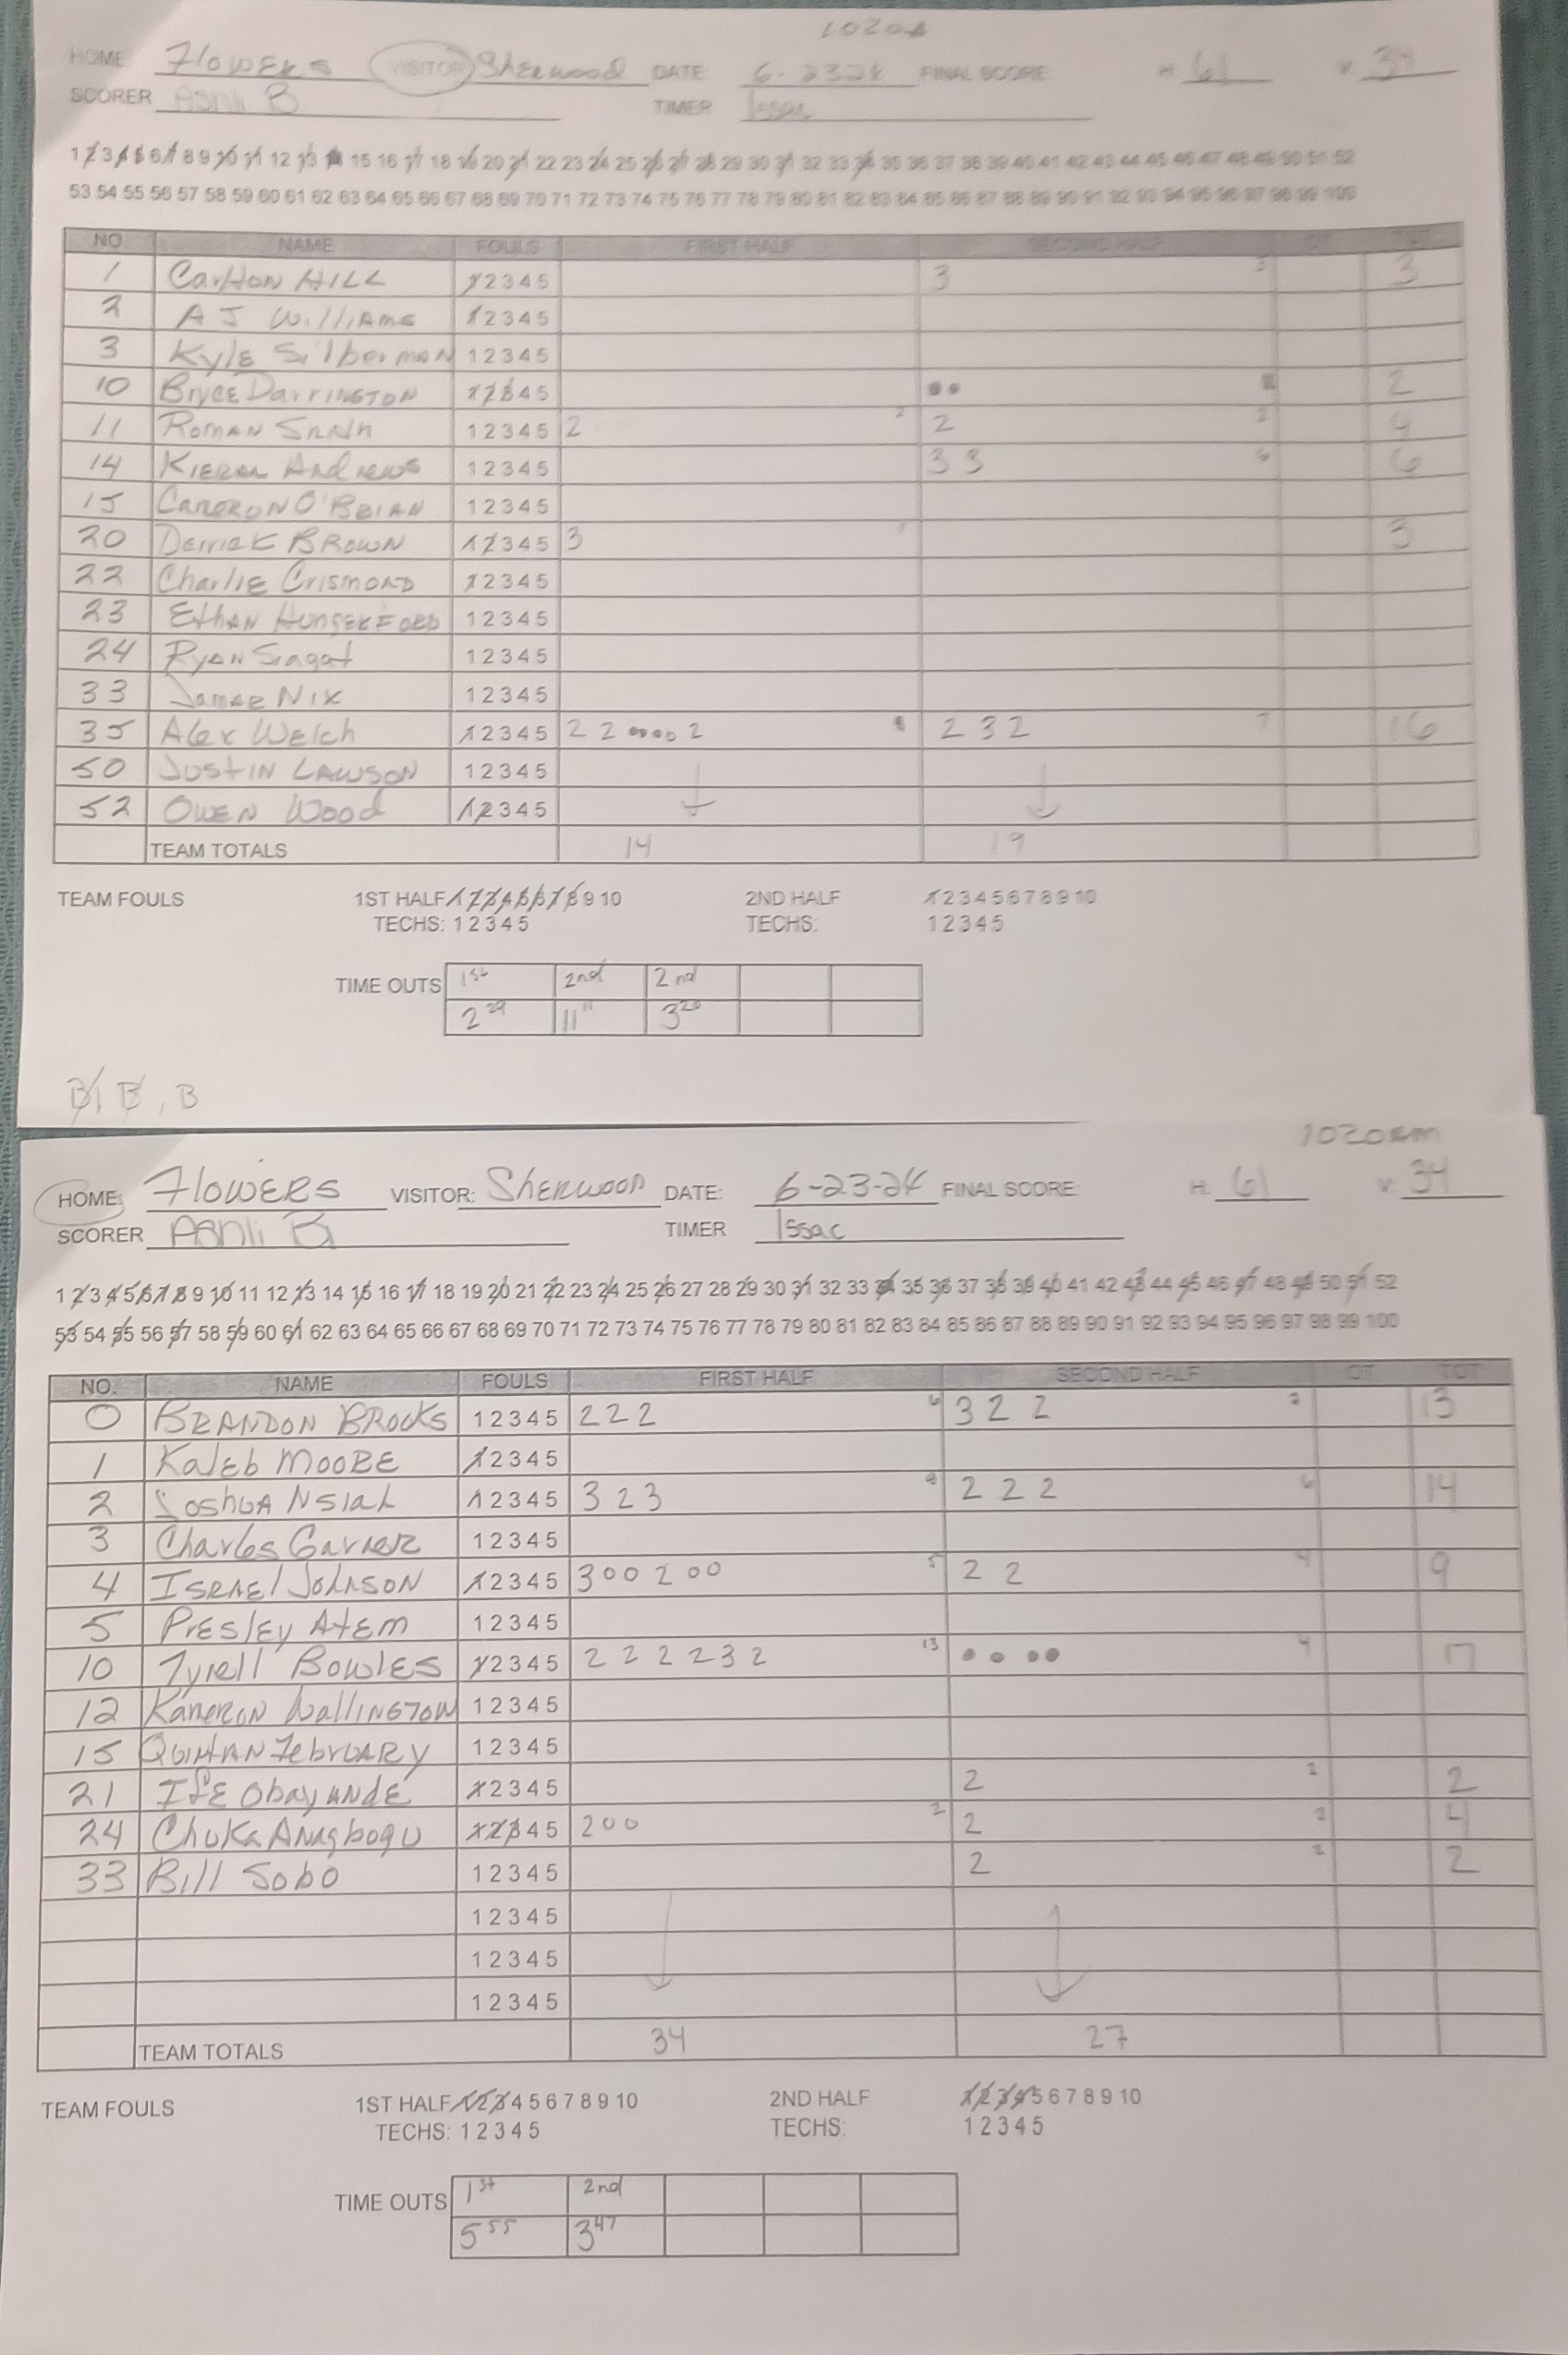 HOME: Flowers VISITOR: Sherwood DATE: FINAL SCORE: H: 61 V: 34
SCORER Ashli B TIMER Issac
1 2 3 4 5 6 7 8 9 10 11 12 13 14 15 16 17 18 19 20 21 22 23 24 25 26 27 28 29 30 31 32 33 34 35 36 37 38 39 40 41 42 43 44 45 46 47 48 49 50 51 52
53 54 55 56 57 58 59 60 61 62 63 64 65 66 67 68 69 70 71 72 73 74 75 76 77 78 79 80 81 82 83 84 85 86 87 88 89 90 91 92 93 94 95 96 97 98 99 100
NO. NAME FOULS FIRST HALF SECOND HALF OT TOT
1 Carlton HILL 1 2 3 4 5 3 3 3
2 AJ Williams 1 2 3 4 5
3 Kyle Silberman 1 2 3 4 5
10 Bryce Darrington 1 2 3 4 5 •• 2 2
11 Roman 1 2 3 4 5 2 2 2 2 4
14 Kieran Andrews 1 2 3 4 5 3 3 6 6
15 Cameron O'Brian 1 2 3 4 5
20 Derrick Brown 1 2 3 4 5 3 3 3
22 Charlie Crismond 1 2 3 4 5
23 Ethan Hungerford 1 2 3 4 5
24 Ryan 1 2 3 4 5
33 Nix 1 2 3 4 5
35 Alex Welch 1 2 3 4 5 2 2 •••o 2 2 3 2 7 16
50 Justin Lawson 1 2 3 4 5
52 Owen Wood 1 2 3 4 5
TEAM TOTALS 14 19
TEAM FOULS 1ST HALF 1 2 3 4 5 6 7 8 9 10 2ND HALF 1 2 3 4 5 6 7 8 9 10
TECHS: 1 2 3 4 5 TECHS: 1 2 3 4 5
TIME OUTS 1st 2nd 2nd
2 29 11 11 3 20
B, B, B
1020am
HOME: Flowers VISITOR: Sherwood DATE: 6-23-24 FINAL SCORE: H: 61 V: 34
SCORER Ashli B TIMER Issac
1 2 3 4 5 6 7 8 9 10 11 12 13 14 15 16 17 18 19 20 21 22 23 24 25 26 27 28 29 30 31 32 33 34 35 36 37 38 39 40 41 42 43 44 45 46 47 48 49 50 51 52
53 54 55 56 57 58 59 60 61 62 63 64 65 66 67 68 69 70 71 72 73 74 75 76 77 78 79 80 81 82 83 84 85 86 87 88 89 90 91 92 93 94 95 96 97 98 99 100
NO. NAME FOULS FIRST HALF SECOND HALF OT TOT
0 Brandon Brooks 1 2 3 4 5 2 2 2 6 3 2 2 7 13
1 Kaleb Moore 1 2 3 4 5
2 Joshua Nsiah 1 2 3 4 5 3 2 3 8 2 2 2 6 14
3 Charles 1 2 3 4 5
4 Israel Johnson 1 2 3 4 5 3 o o 2 o o 5 2 2 4 9
5 Presley Atem 1 2 3 4 5
10 Tyrell Bowles 1 2 3 4 5 2 2 2 2 3 2 13 • • •• 4 17
12 Kameron Wallington 1 2 3 4 5
15 Quintan February 1 2 3 4 5
21 Ife Obayande 1 2 3 4 5 2 2 2
24 Chuka Anagbogu 1 2 3 4 5 2 o o 2 2 2 4
33 Bill Sobo 1 2 3 4 5 2 2 2
1 2 3 4 5
1 2 3 4 5
1 2 3 4 5
TEAM TOTALS 34 27
TEAM FOULS 1ST HALF 1 2 3 4 5 6 7 8 9 10 2ND HALF 1 2 3 4 5 6 7 8 9 10
TECHS: 1 2 3 4 5 TECHS: 1 2 3 4 5
TIME OUTS 1st 2nd
5 55 3 47